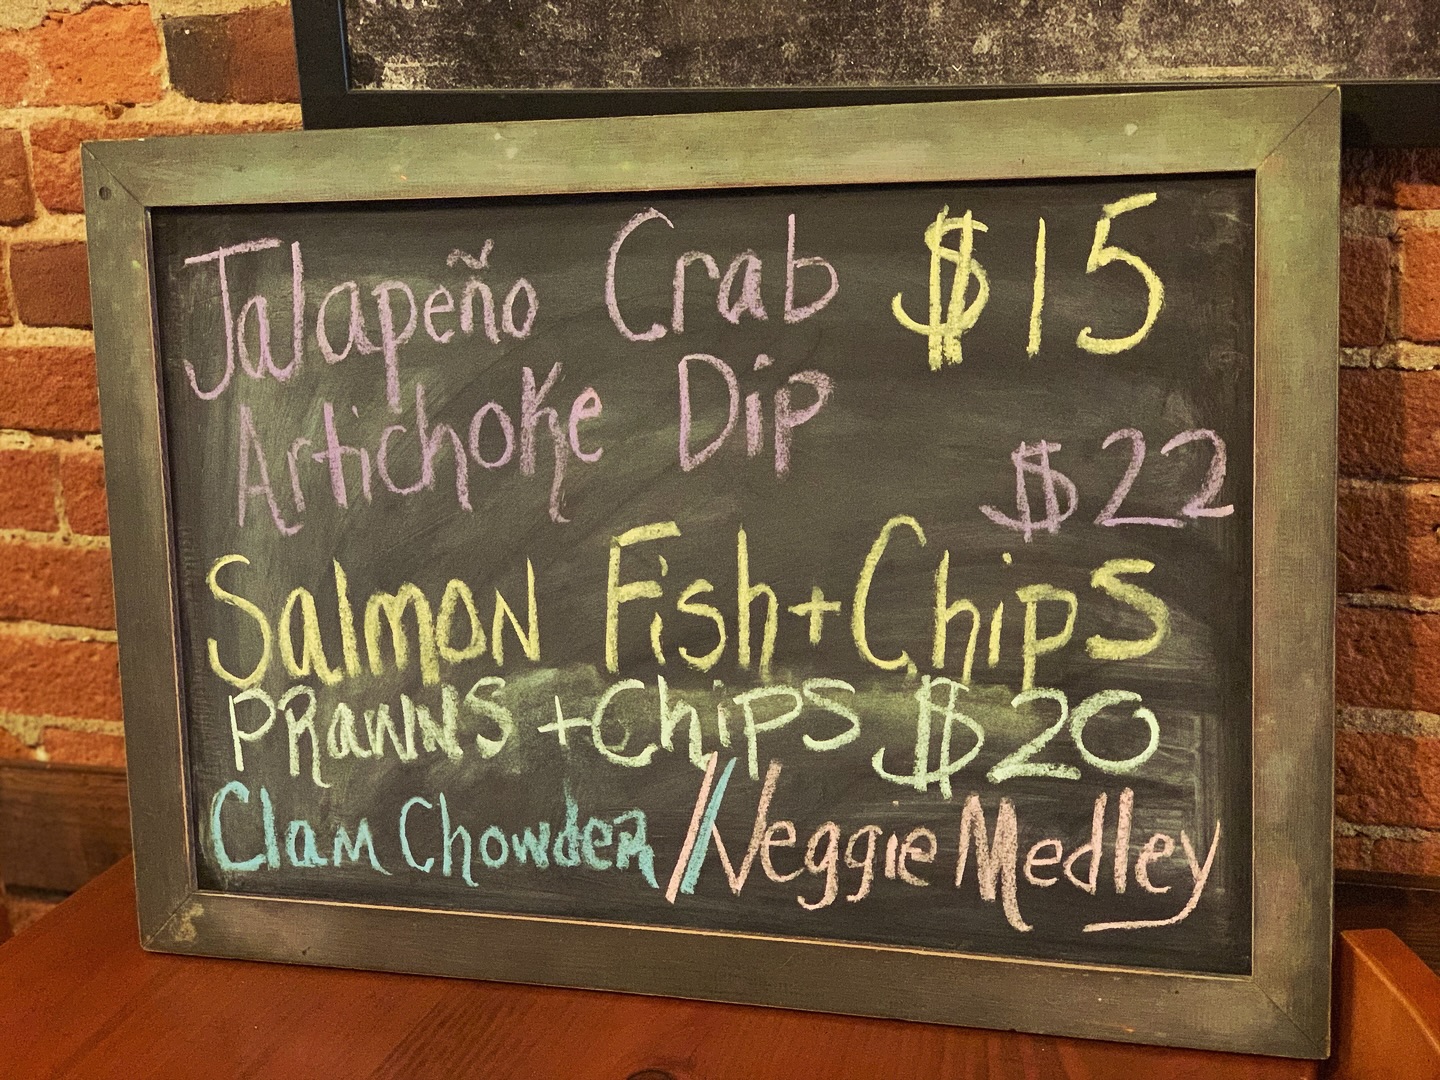 Jalapeño Crab $15
Artichoke Dip
$22
Salmon Fish + Chips
PRawNS + Chips $20
Clam Chowder // Veggie Medley